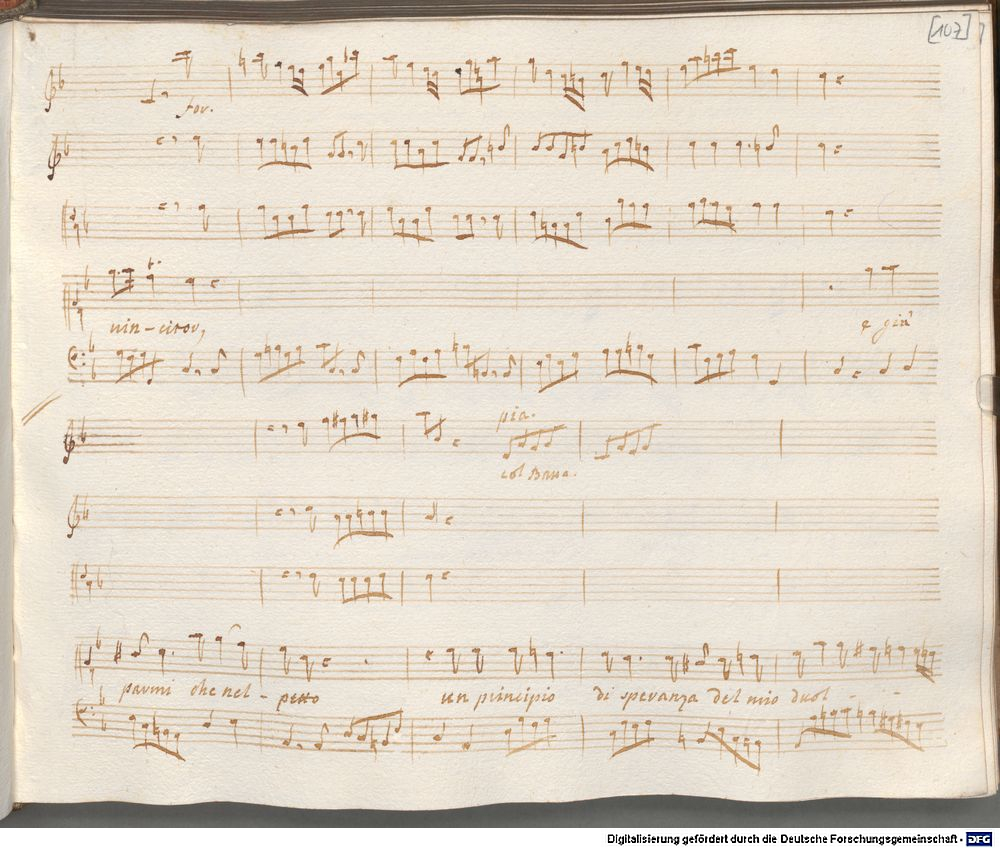 [107]
for.
vin-citor,
e giù
pia.
col Basso.
parmi che nel-petto un principio di speranza del mio duol - - -
Digitalisierung gefördert durch die Deutsche Forschungsgemeinschaft - DFG